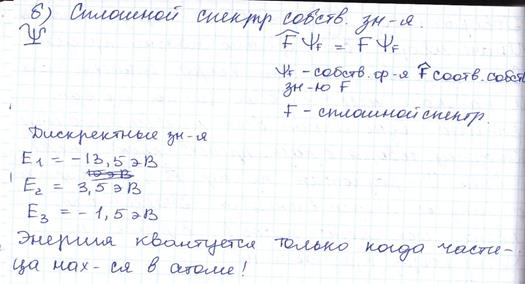 б) Сплошной спектр собств. зн-я.
Ψ̂
F̂ Ψ_F = F Ψ_F
Ψ_F – собств. ф-я F̂ соотв. собств
зн-ю F
F – сплошной спектр.
Дискректные зн-я
E₁ = -13,5 эВ
E₂ = 3,5 эВ
E₃ = -1,5 эВ
Энергия квантуется только когда части-
ца нах-ся в атоме!